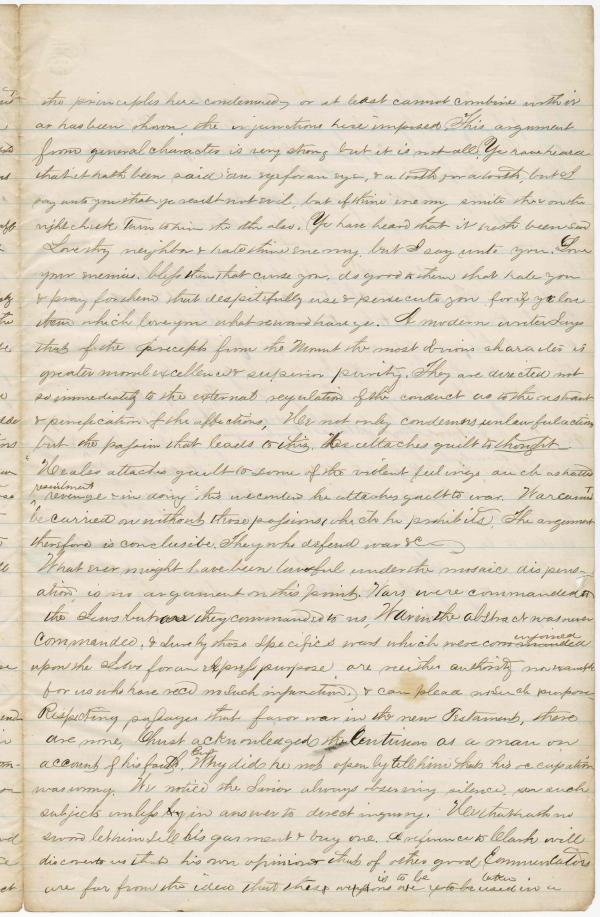 the principles here condemned, or at least cannot combine with it
as has been shown the injunctions here imposed. This argument
from general character is very strong but it is not all. Ye have heard
that it hath been said an eye for an eye, & a tooth for a tooth, but I
say unto you that ye resist not evil, but if thine enemy smite thee on the
right cheek Turn to him the other also. Ye have heard that it hath been said
Love thy neighbor & hate thine enemy, but I say unto you. Love
your enemies, bless them that curse you, do good to them that hate you
& pray for them that despitefully use & persecute you for if ye love
them which love you what reward have ye. A modern writer says
that of the precepts from the Mount the most obvious character is
greater moral excellence & superior purity. They are directed not
so immediately to the external regulation of the conduct as to the restraint
& purification of the affections, He not only condemns unlawful action
but the passion that leads to this. He attaches guilt to thought
He also attaches guilt to some of the violent feelings such as hatred
resentment
revenge & in doing this we contend he attaches guilt to war. War cannot
be carried on without those passions which he prohibits. The argument
therefore is conclusive. They who defend war &c
What ever might have been lawful under the mosaic dispens-
ation, is no argument on this point. Wars were commanded to
the Jews but are they commanded to us. War in the abstract was never
enjoined
commanded, & surely those specifics wars which were commanded
upon the Jews for an express purpose are neither authority nor
for us who have rec'd no such injunction, & can plead no such purpose
Respecting passages that favor war in the new Testament, there
are none, Christ acknowledged the Centurion as a man on
account of his faith. But Why did he not openly tell him that his occupation
was wrong. We notice the Savior always observing silence, on such
subjects unless by in answer to direct inquiry. He that hath no
sword let him sell his garment & buy one. A reference to Clark will
discover to us that his own opinion & that of other good Commentators
is to be taken
are far from the idea that these weapons were to be used in a